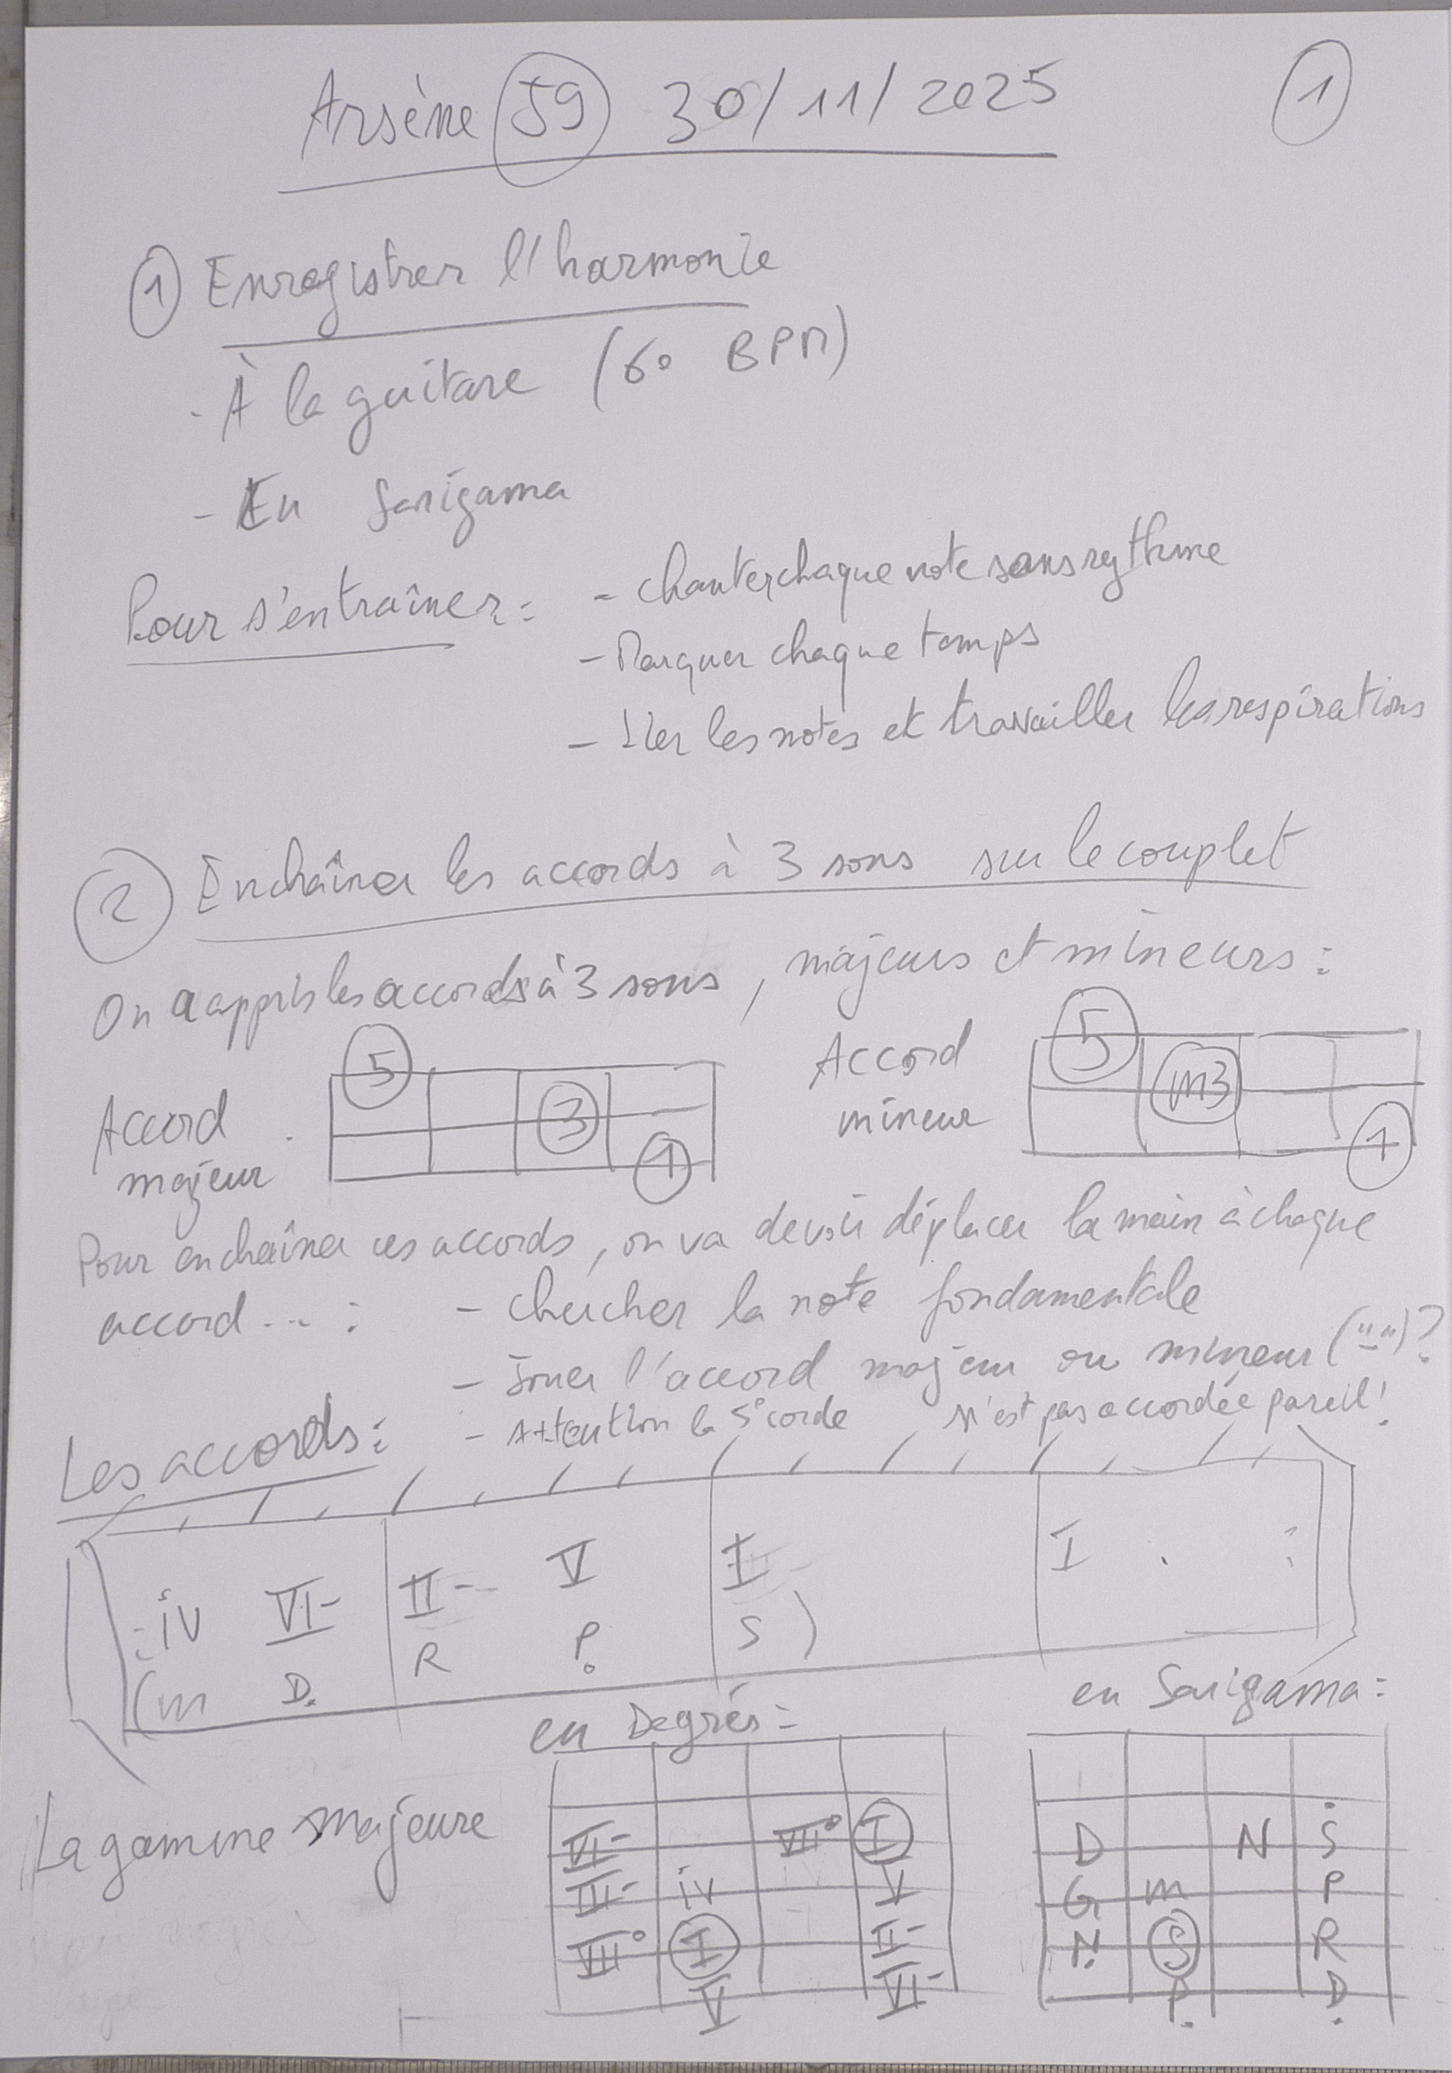 Arsène 59 30/11/2025
1
1 Enregistrer l'harmonie
- À la guitare (60 BPM)
- En Sarigama
Pour s'entraîner :
- chanter chaque note sans rythme
- Marquer chaque temps
- Lier les notes et travailler les respirations
2 Enchaîner les accords à 3 sons sur le couplet
On a appris les accords à 3 sons, majeurs et mineurs :
Accord majeur
5
3
1
Accord mineur
5
m3
1
Pour enchaîner ces accords, on va devoir déplacer la main à chaque
accord... :
- chercher la note fondamentale
- Jouer l'accord majeur ou mineur ("-") ?
- Attention la 5e corde n'est pas accordée pareil !
Les accords :
: iv VI- II- V I I . :
(m Ḍ R P̣ S)
La gamme majeure
en Degrés :
VI- VII° I
III- iv V
VII° I II-
V VI-
en Sarigama :
D N Ṡ
G m P
Ṇ S R
P̣ Ḍ